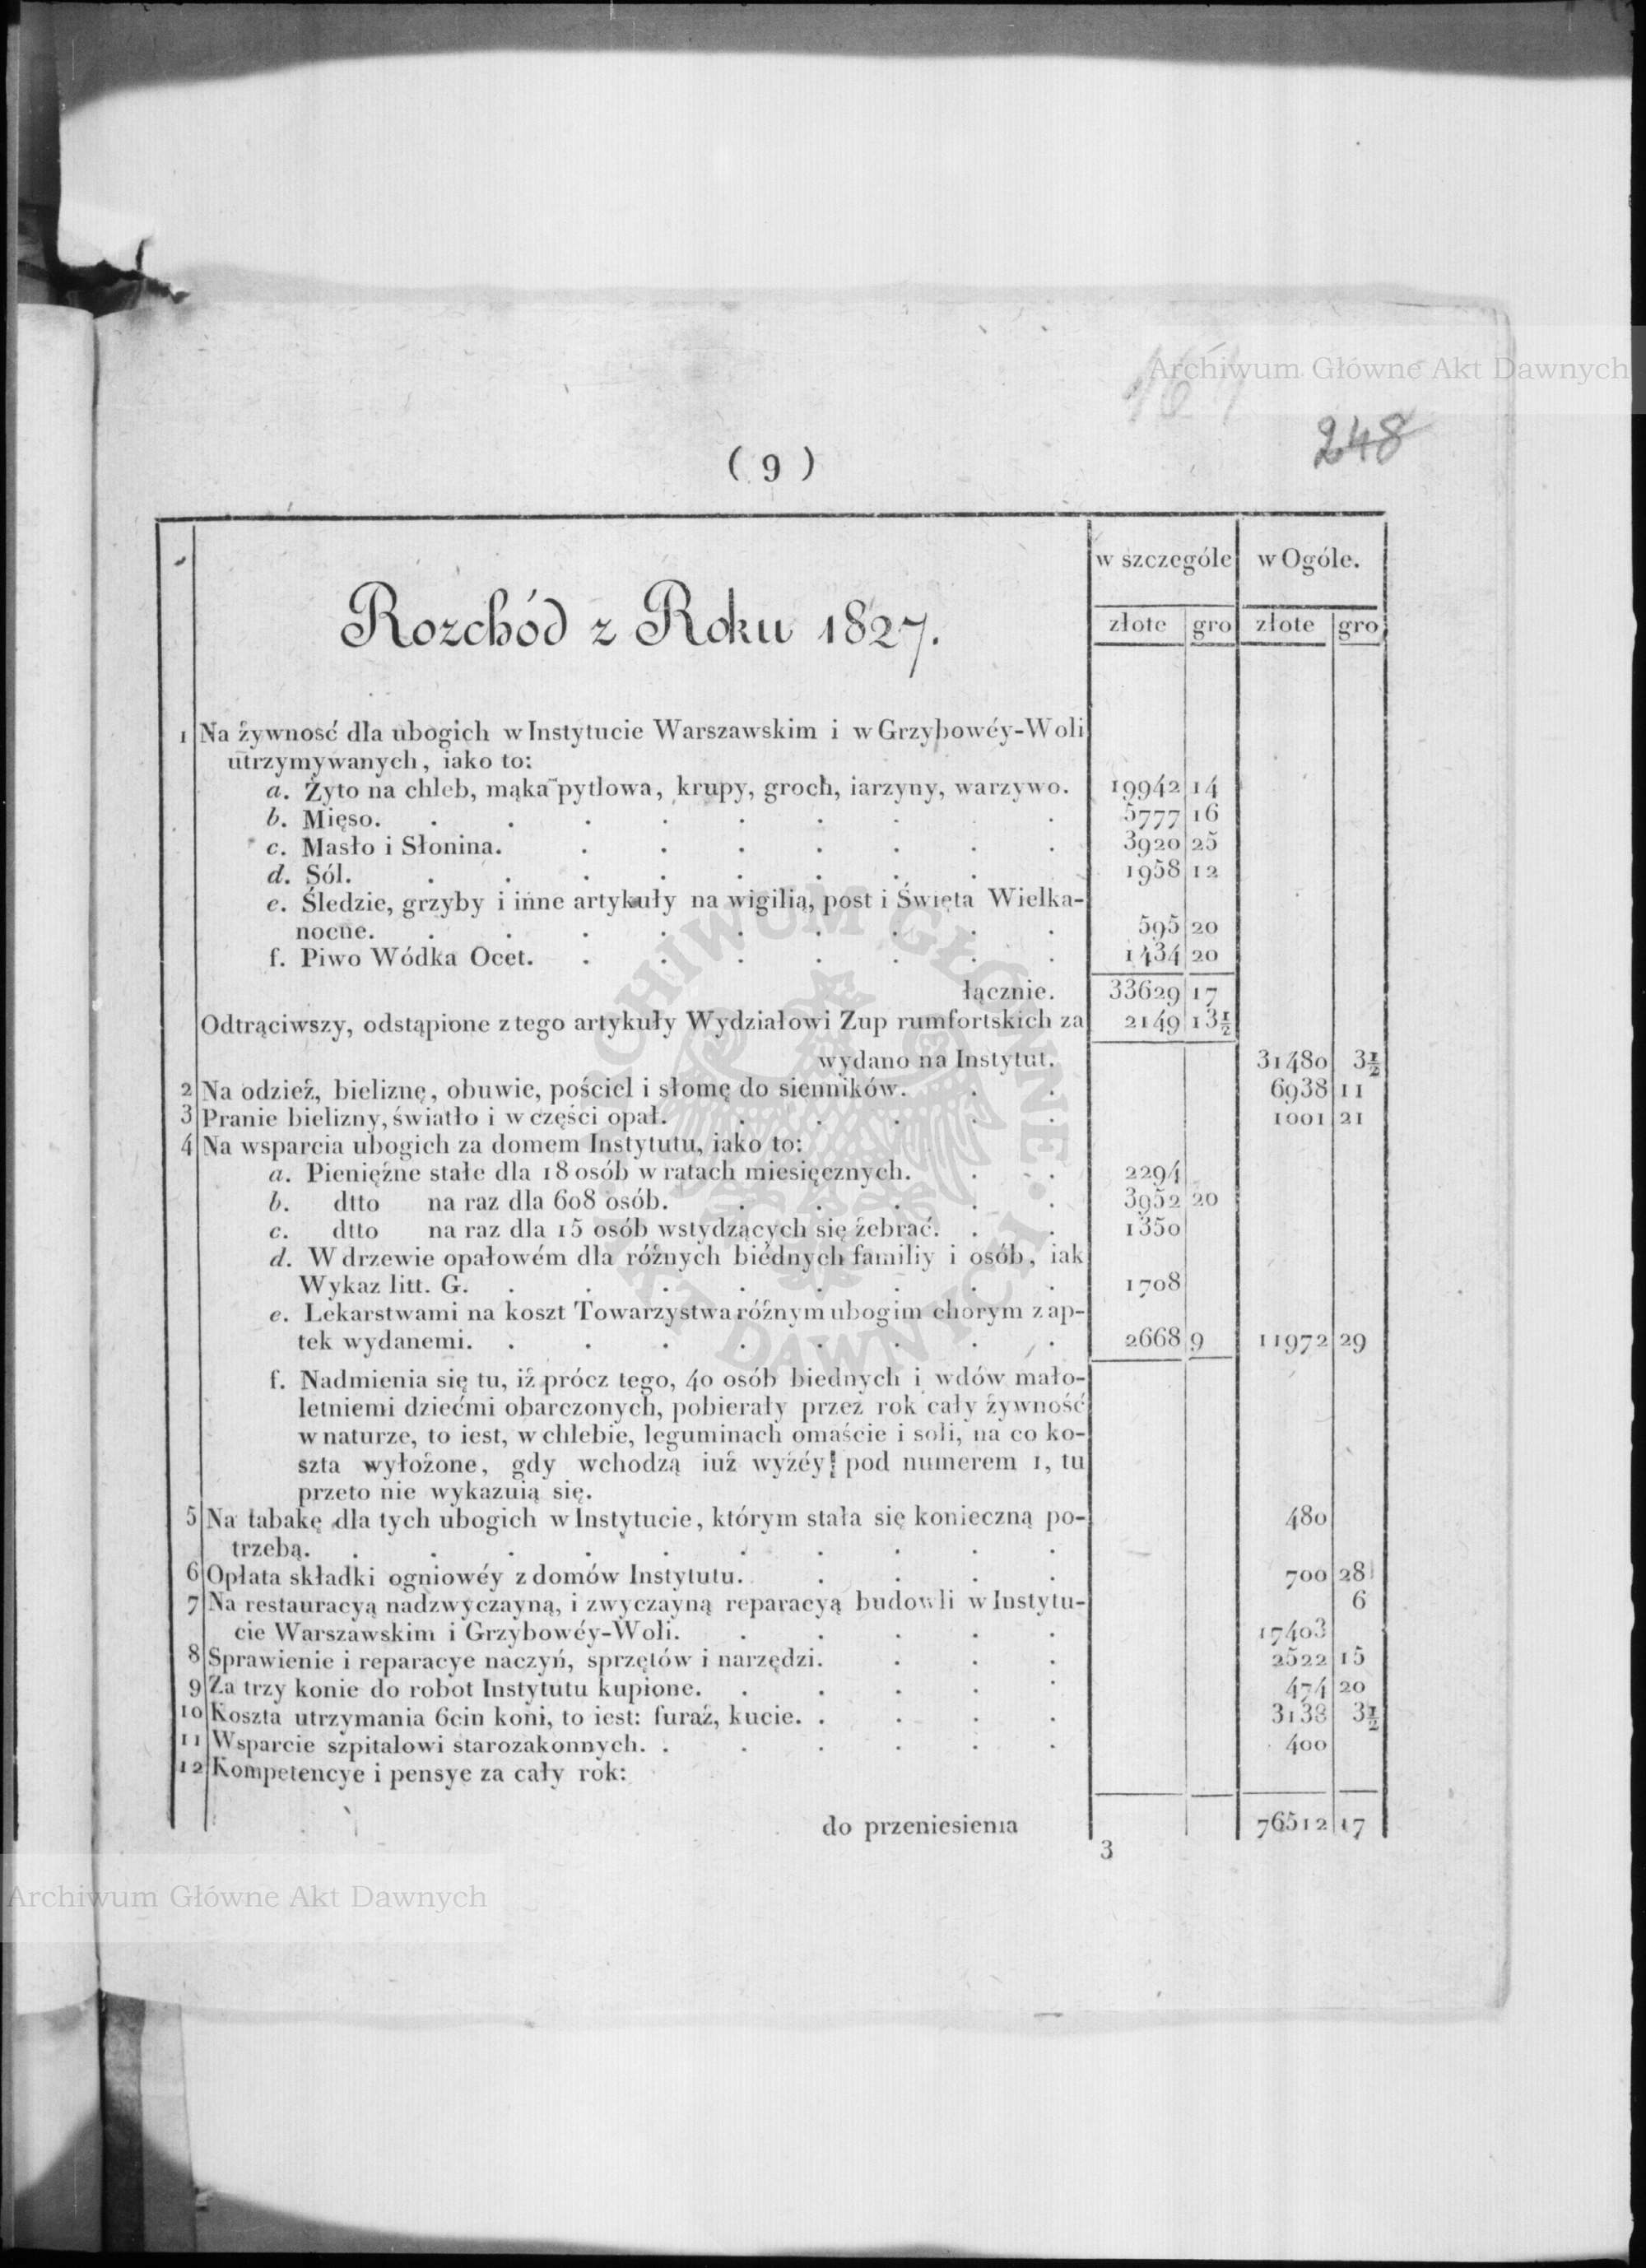 Archiwum Główne Akt Dawnych
248
( 9 )
w szczególe w Ogóle.
Rozchód z Roku 1827.
złote gro złote gro
1 Na żywność dla ubogich w Instytucie Warszawskim i w Grzybowéy-Woli
utrzymywanych, iako to:
a. Żyto na chleb, mąka pytlowa, krupy, groch, iarzyny, warzywo. 19942 14
b. Mięso. 5777 16
c. Masło i Słonina. 3920 25
d. Sól. 1958 12
e. Śledzie, grzyby i inne artykuły na wigilią, post i Święta Wielka-
nocne. 595 20
f. Piwo Wódka Ocet. 1434 20
łącznie. 33629 17
Odtrąciwszy, odstąpione z tego artykuły Wydziałowi Zup rumfortskich za 2149 13½
wydano na Instytut. 31480 3½
2 Na odzież, bieliznę, obuwie, pościel i słomę do sienników. 6938 11
3 Pranie bielizny, światło i w części opał. 1001 21
4 Na wsparcia ubogich za domem Instytutu, iako to:
a. Pieniężne stałe dla 18 osób w ratach miesięcznych. 2294
b. dtto na raz dla 608 osób. 3952 20
c. dtto na raz dla 15 osób wstydzących się żebrać. 1350
d. W drzewie opałowém dla różnych biednych familiy i osób, iak
Wykaz litt. G. 1708
e. Lekarstwami na koszt Towarzystwa różnym ubogim chorym z ap-
tek wydanemi. 2668 9 11972 29
f. Nadmienia się tu, iż prócz tego, 40 osób biednych i wdów mało-
letniemi dziećmi obarczonych, pobierały przez rok cały żywność
w naturze, to iest, w chlebie, leguminach omaście i soli, na co ko-
szta wyłożone, gdy wchodzą iuż wyżéy pod numerem 1, tu
przeto nie wykazuią się.
5 Na tabakę dla tych ubogich w Instytucie, którym stała się konieczną po- 480
trzebą.
6 Opłata składki ogniowéy z domów Instytutu. 700 28
7 Na restauracyą nadzwyczayną, i zwyczayną reparacyą budowli w Instytu- 6
cie Warszawskim i Grzybowéy-Woli. 17403
8 Sprawienie i reparacye naczyń, sprzętów i narzędzi. 2522 15
9 Za trzy konie do robot Instytutu kupione. 474 20
10 Koszta utrzymania 6cin koni, to iest: furaż, kucie. 3138 3½
11 Wsparcie szpitalowi starozakonnych. 400
12 Kompetencye i pensye za cały rok:
do przeniesienia 76512 17
3
Archiwum Główne Akt Dawnych
ARCHIWUM GŁÓWNE
AKT DAWNYCH